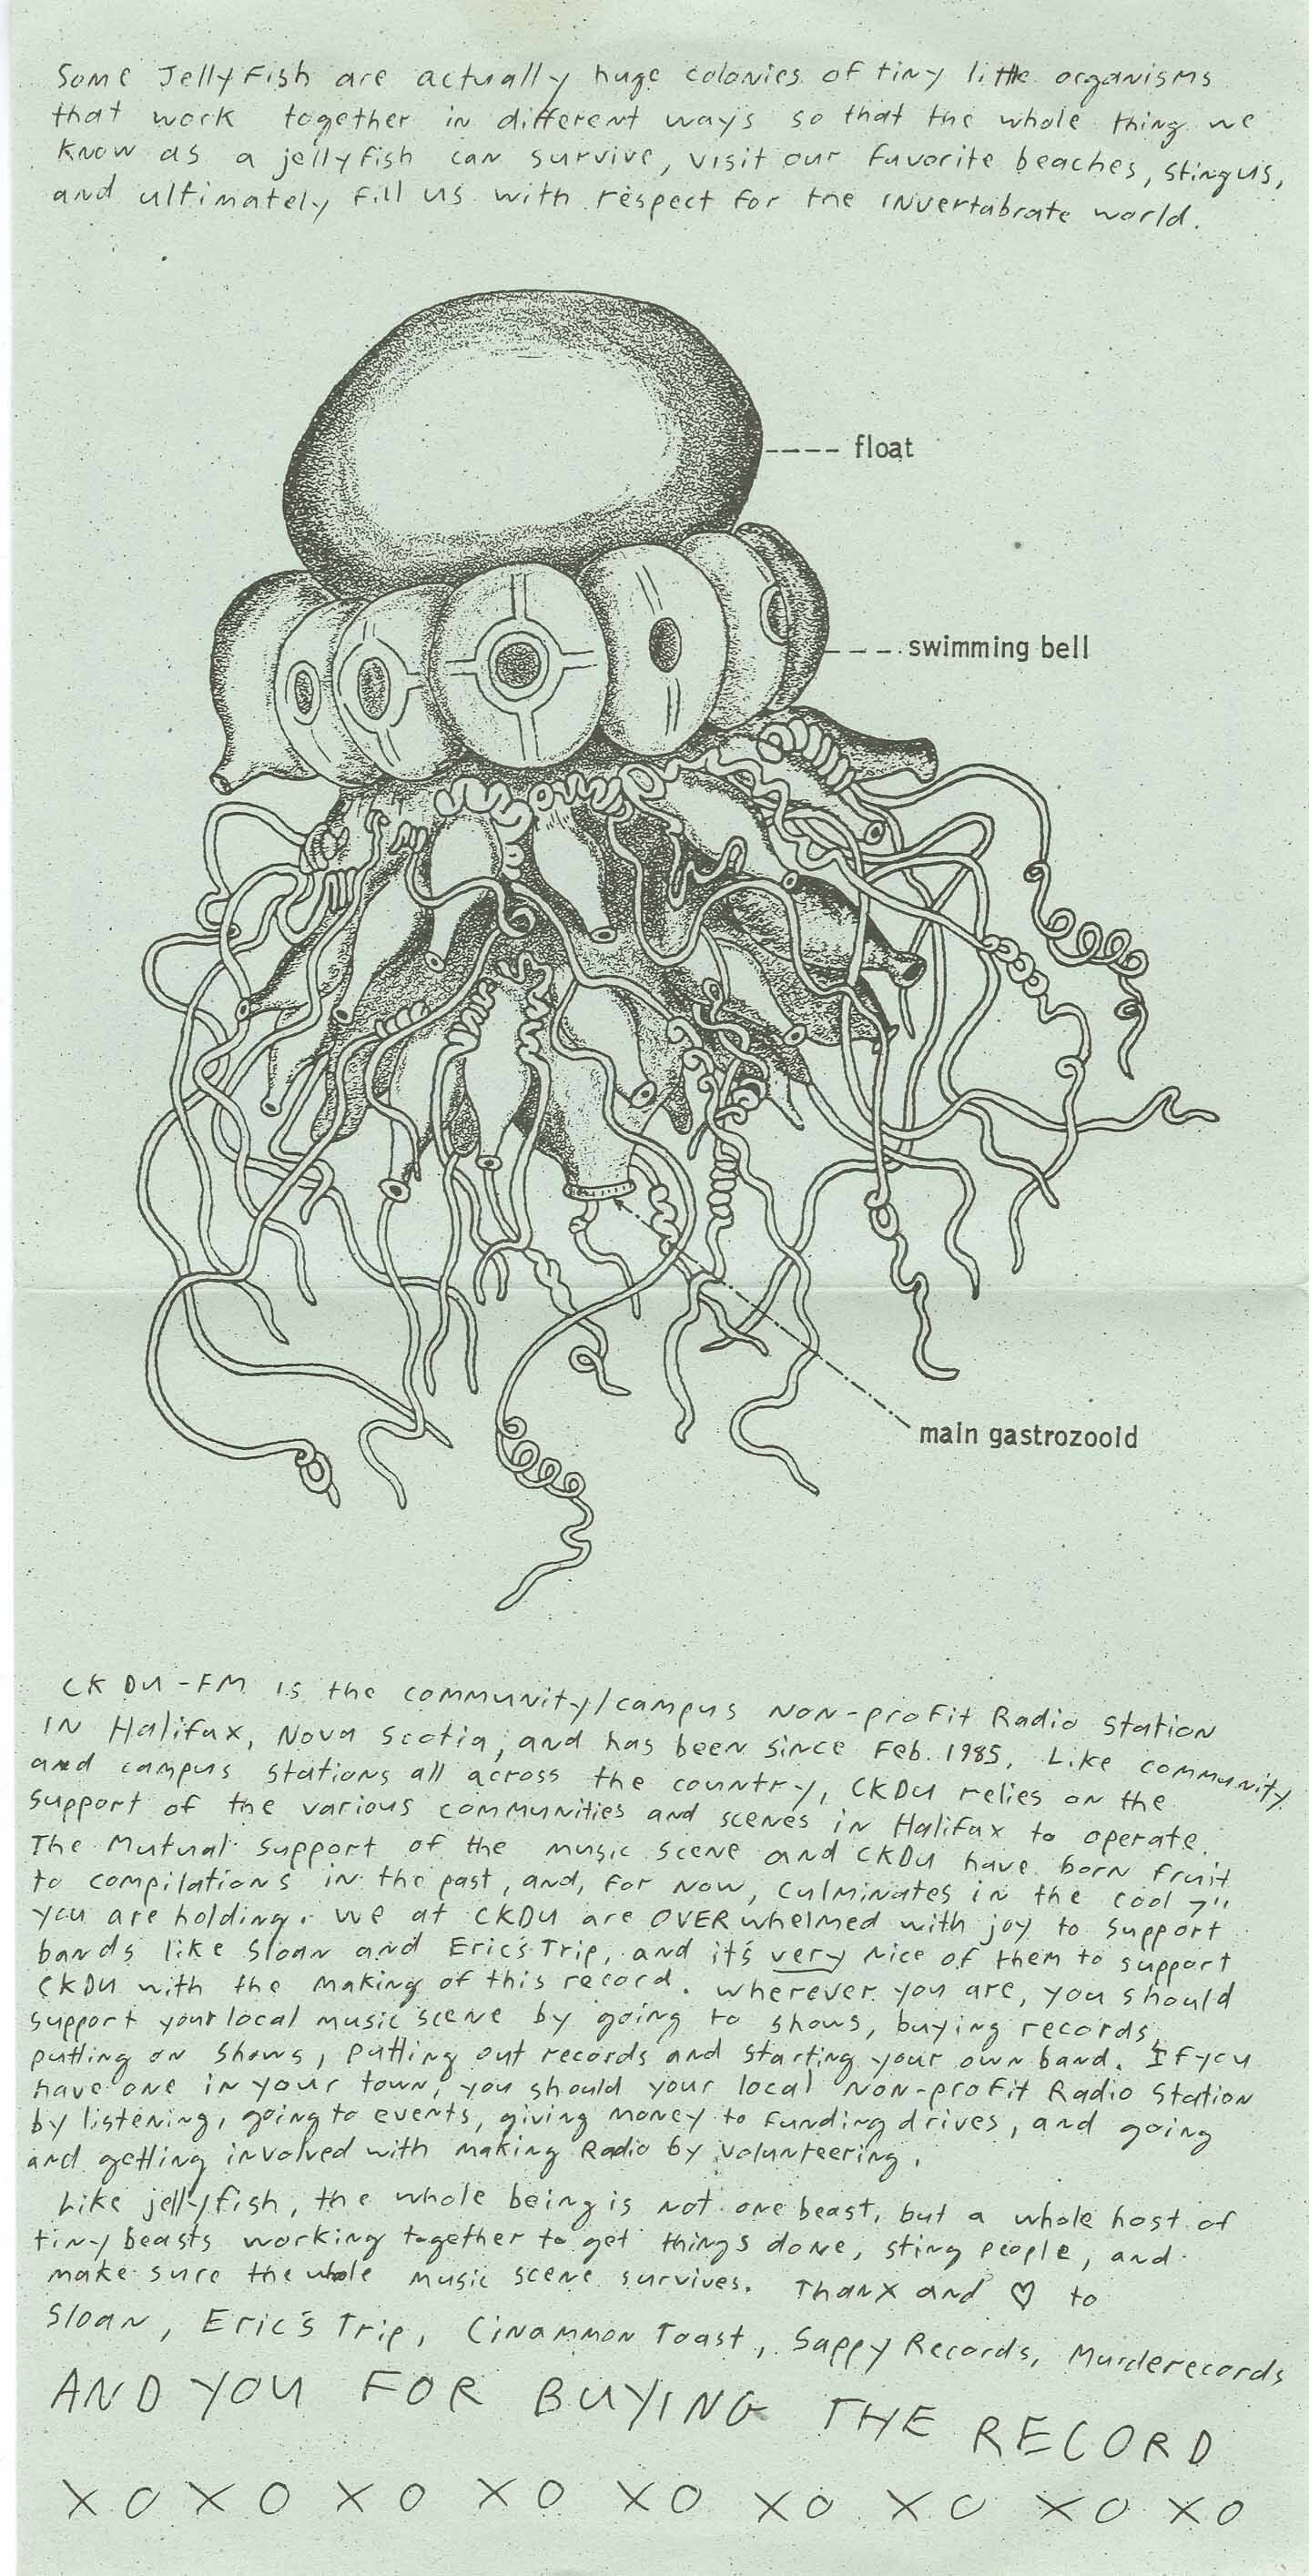 Some Jellyfish are actually huge colonies of tiny little organisms
that work together in different ways so that the whole thing we
know as a jellyfish can survive, visit our favorite beaches, sting us,
and ultimately fill us with respect for the invertabrate world.
float
swimming bell
main gastrozooid
CKDU-FM is the community/campus non-profit Radio station
in Halifax, Nova Scotia, and has been since Feb. 1985. Like community
and campus stations all across the country, CKDU relies on the
support of the various communities and scenes in Halifax to operate.
The Mutual support of the music scene and CKDU have born fruit
to compilations in the past, and, for now, culminates in the cool 7"
you are holding. We at CKDU are OVERwhelmed with joy to support
bands like Sloan and Eric's Trip, and it's very nice of them to support
CKDU with the making of this record. Wherever you are, you should
support your local music scene by going to shows, buying records,
putting on shows, putting out records and starting your own band. If you
have one in your town, you should your local non-profit Radio Station
by listening, going to events, giving money to funding drives, and going
and getting involved with making Radio by volunteering.
Like jellyfish, the whole being is not one beast, but a whole host of
tiny beasts working together to get things done, sting people, and
make sure the whole music scene survives. Thanx and ♡ to
Sloan, Eric's Trip, Cinammon Toast, Sappy Records, Murderecords
AND YOU FOR BUYING THE RECORD
XOXOXOXOXOXOXOXOXO